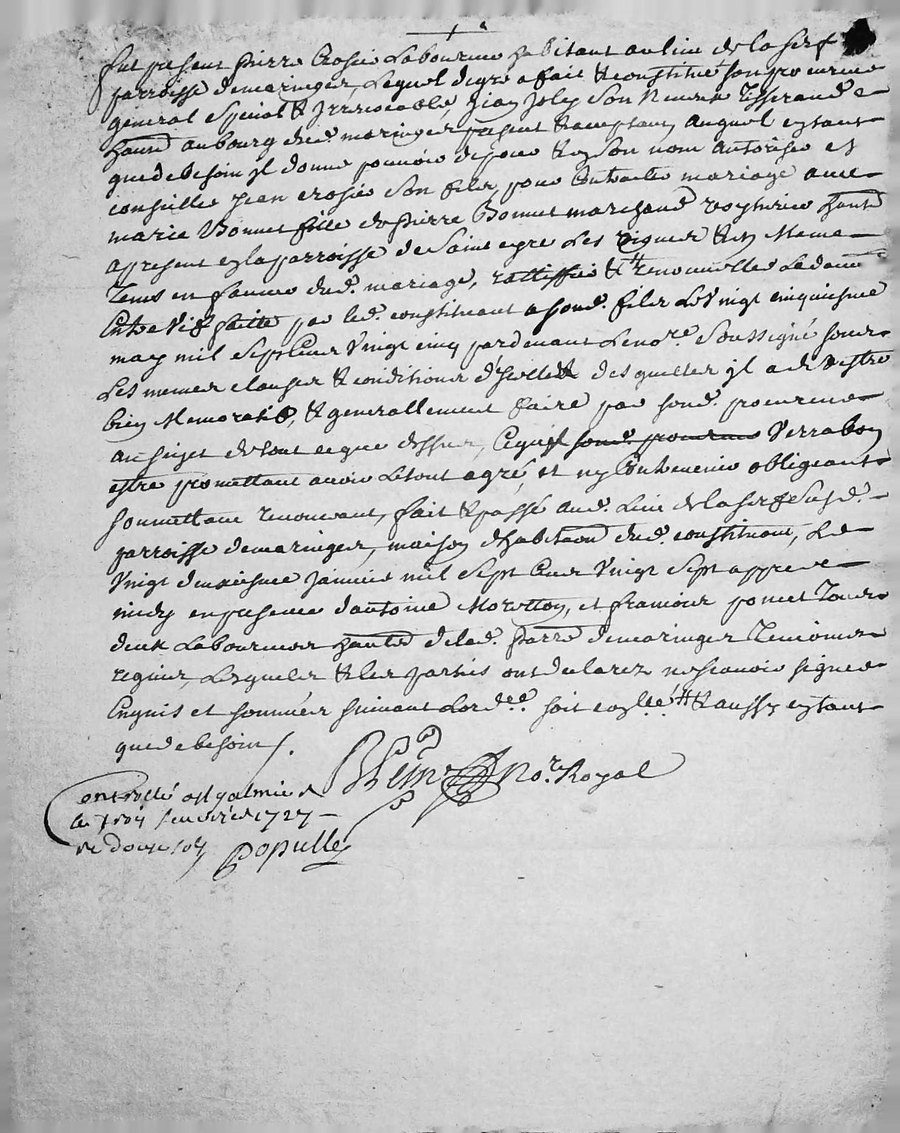 fut present pierre Crosie Laboureur habitant au lieu de la serf
parroisse demaringes, Lequel degré a fait & constitué son procureur
general Special & Jrrevocable, Jean Joly son Neveux Tisserand
habitt au bourg dud. maringes present & acceptant Auquel estant
que de besoin Jl donne pouvoir de pour & en son nom Autoriser et
conseiller jean crosie son fils, pour Contracter mariage avec
marie Bonnet fille de pierre Bonnet marchand voyturier habitt
a present en la parroisse de Saint
Tems en faveur dud. mariage, rattiffier & renouveller La donnon
Entre Vifs faitte par led. constituant a sond. fils Le Vingt cinquiesme
may mil Sept Cent Vingt cinq pardevant Le nore. Soussigné sous
Les memes clauses & conditions d'icelle desquelles jl a dit estre
bien Memoratif, & generallement faire par sond. procureur
au sujet de tout ce que dessus, Ce quil sond. procureur Verra bon
estre promettant avoir Le tout agréé, et ny Contrevenir obligeant
soumettant renonceant, fait & passé aud. Lieu de la serf susd.
parroisse demaringes, maison d'habitaon dud. constituant, Le
Vingt deuxiesme janvier mil Sept Cent Vingt Sept appres
midy en presence dantoine Moretton, et francois poncet Tous
deux Laboureurs habitts de lad. parre demaringes Temoins
requis, Lesquels & les parties ont declarez ne scavoir signer
Enquis et sommées suivant Lordee. soit conllé & aussy estant
que de besoin.
nore. Royal
controllé a st galmier
le trois fevrier 1727
re douze sols
Populle